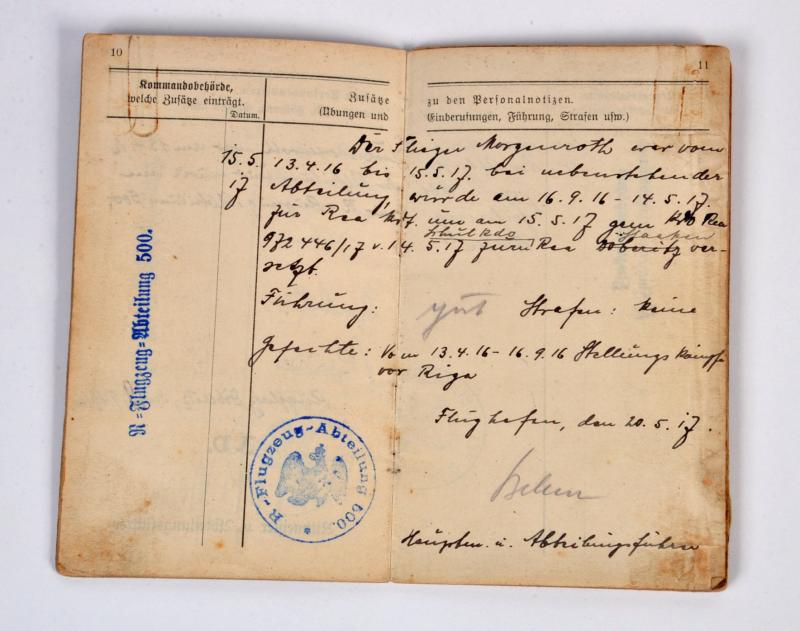 10
11
Kommandobehörde,
welche Zusätze einträgt.
Datum.
Zusätze zu den Personalnotizen.
(Übungen und Einberufungen, Führung, Strafen usw.)
15.5.
17
R=Flugzeug=Abteilung 500.
Der Flieger Morgenroth war vom
13.4.16 bis 15.5.17. bei nebenstehender
Abteilung, wurde am 16.9.16 - 14.5.17.
zur Rea kdt. um am 15.5.17 gem Kdo Rea
Schulkdo Staaken
972446/17 v. 14.5.17 zum Rea Döberitz ver-
setzt.
Führung: gut Strafen: keine
Gefechte: Vom 13.4.16 - 16.9.16 Stellungskämpfe
vor Riga
Flughafen, den 20.5.17.
Hauptm. u. Abteilungsführer
R-Flugzeug-Abteilung 500.